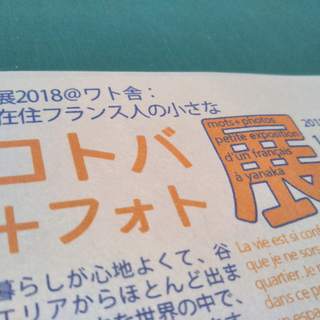 展2018@ワト舎：
在住フランス人の小さな
コトバ
＋フォト
展
mots+photos
petite exposition
d'un français
à yanaka
201
暮らしが心地よくて、谷
エリアからほとんど出ま
た世界の中で、
La vie est si conf
que je ne sors
quartier. Je n
dans ce p